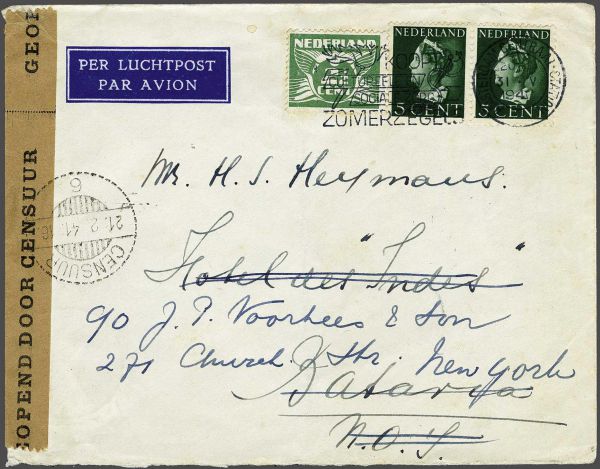 GEOP
GEOPEND DOOR CENSUUR
PER LUCHTPOST
PAR AVION
NEDERLAND
NEDERLAND
5 CENT
NEDERLAND
5 CENT
KOOPT
ZOMERZEGELS
1940
6
21.2.41.
CENSUUR
Mr. H. S. Heymans.
Hotel des "Indes"
90 J. P. Voorhees & Son
271 Church Str. New York
Batavia
N.O.I.